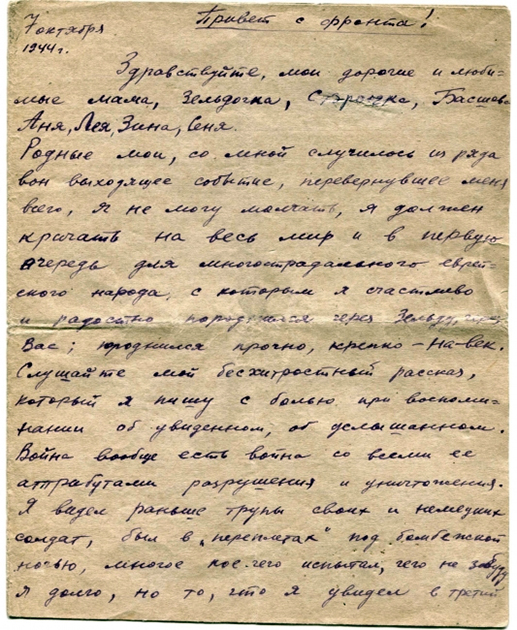 Привет с фронта!
7 октября
1944 г.
Здравствуйте, мои дорогие и люби-
мые мама, Зельдочка,
Аня, Лея, Зина, Сеня.
Родные мои, со мной случилось из ряда
вон выходящее событие, перевернувшее меня
всего, Я не могу молчать, я должен
кричать на весь мир и в первую
очередь для многострадального еврей-
ского народа, с которым я счастливо
и радостно породнился через Зельду, через
Вас; породнился прочно, крепко - на-век.
Слушайте мой бесхитростный рассказ,
который я пишу с болью при воспоми-
нании об увиденном, об услышанном.
Война вообще есть война со всеми ее
аттрабутами разрушения и уничтожения.
Я видел раньше трупы своих и немецких
солдат, был в „переплетах" под бомбежкой
ночью, многое кое-чего испытал, чего не забуду
я долго, но то, что я увидел в третий